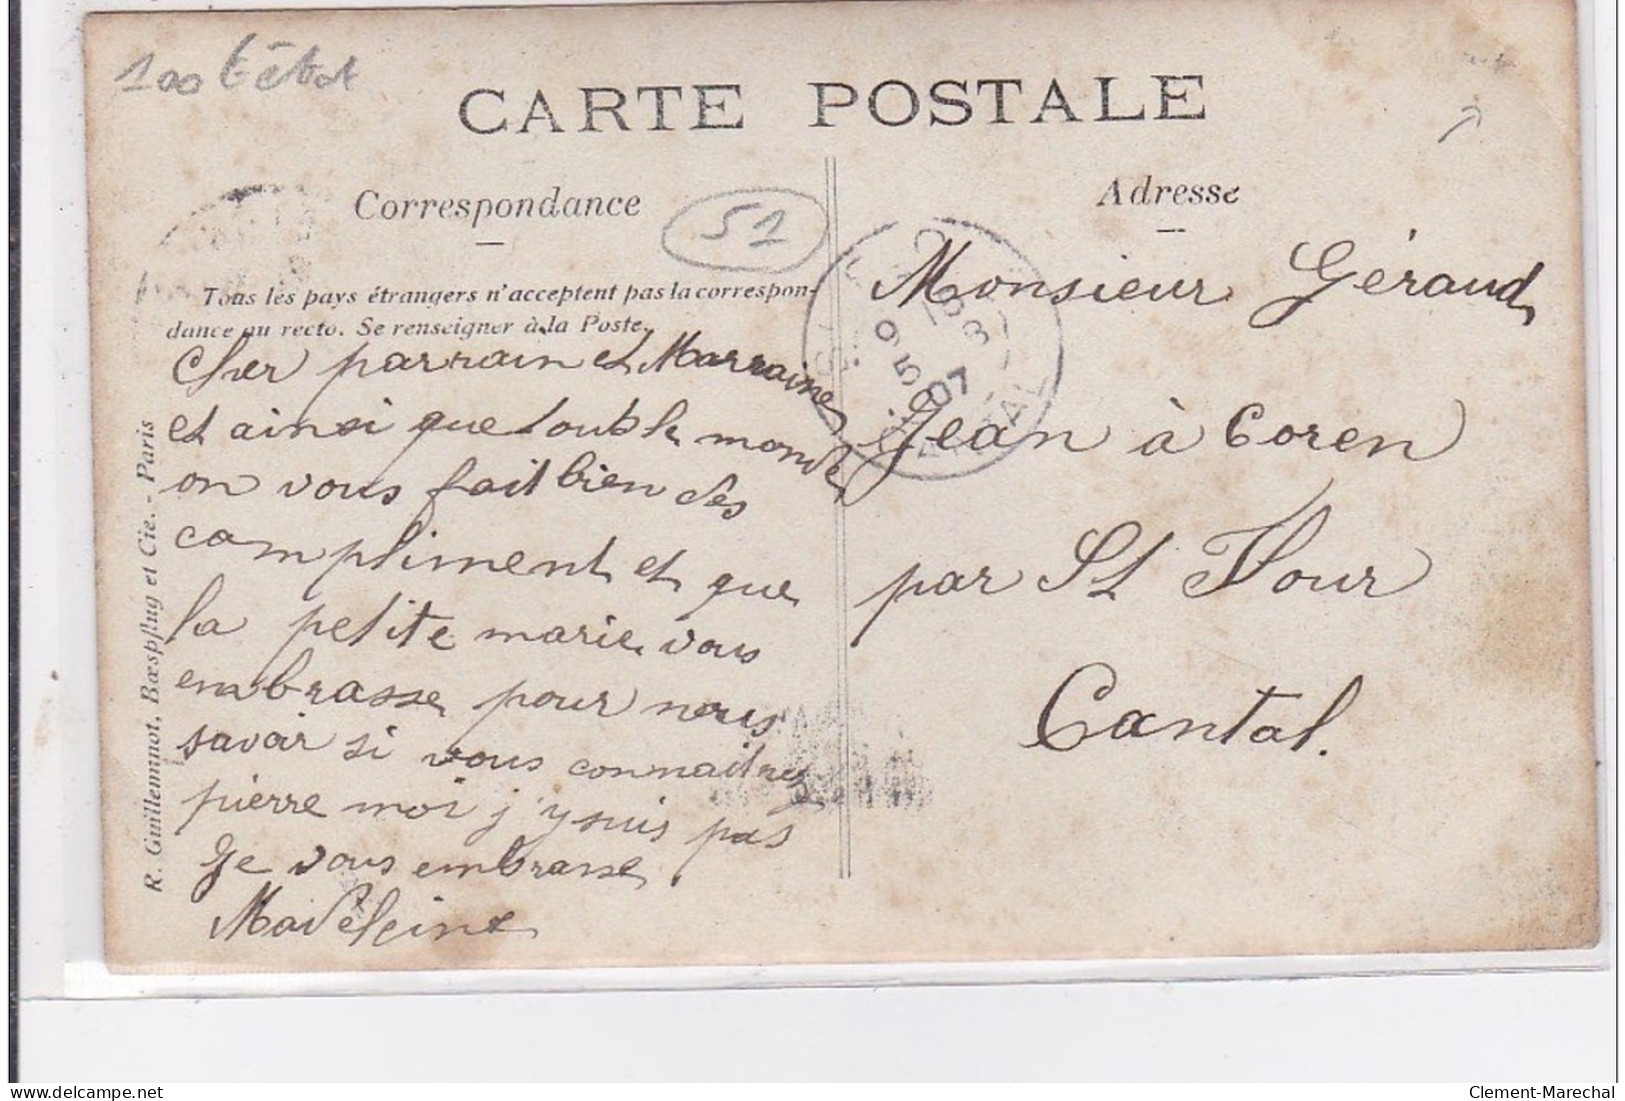 100 t état
CARTE POSTALE
Correspondance
51
Adresse
Tous les pays étrangers n'acceptent pas la correspon-
dance au recto. Se renseigner à la Poste.
Cher parrain et Marraine
et ainsi que toutle monde
on vous fait bien des
compliment et que
la petite marie vous
embrasse pour nous
savoir si vous connaitrez
pierre moi j'y suis pas
Je vous embrasse
Madeleine
R. Guillemmot, Bœspflug et Cie. - Paris
Monsieur Géraud
Jean à Coren
par St Flour
Cantal.
9
5
07
Clement-Marechal